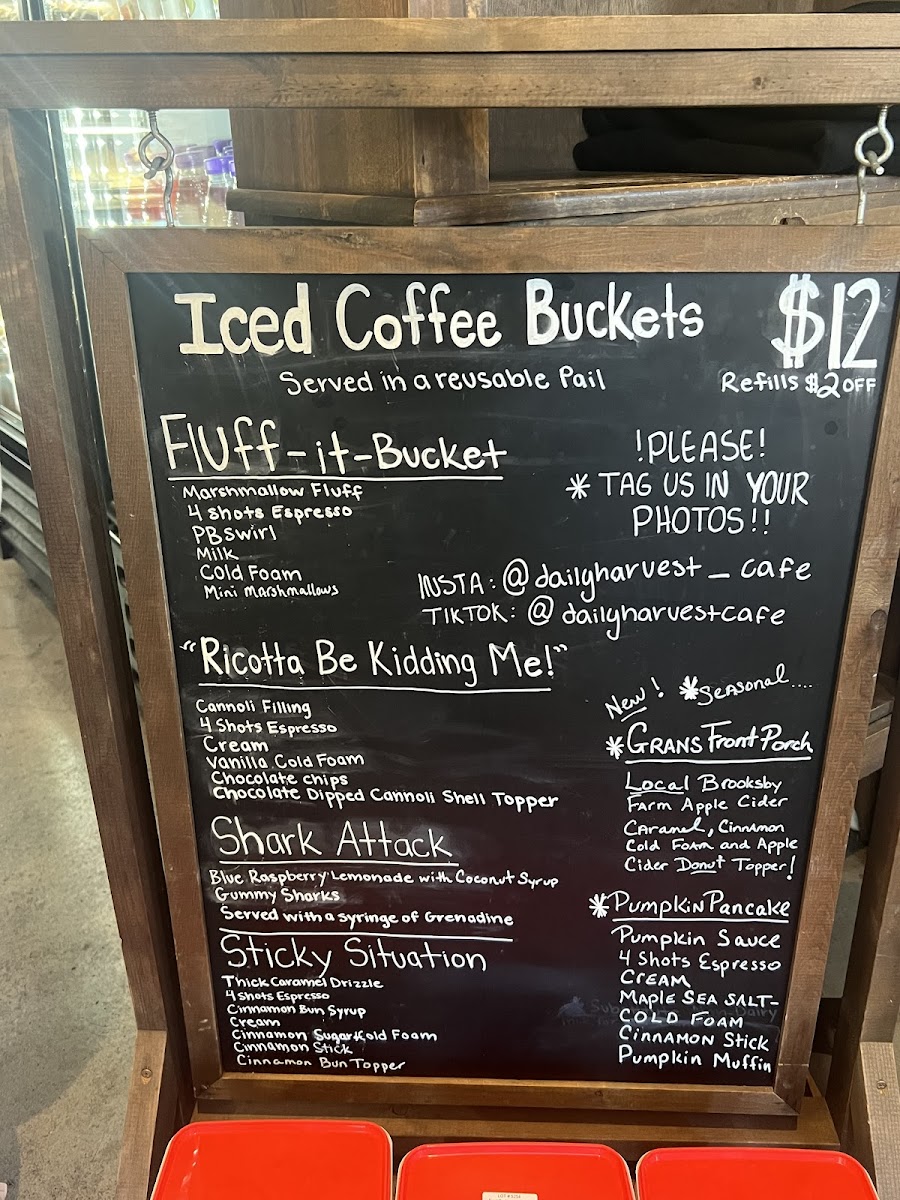 Iced Coffee Buckets $12
Served in a reusable Pail
Refills $2 OFF
Fluff-it-Bucket
Marshmallow Fluff
4 shots Espresso
PB Swirl
Milk
Cold Foam
Mini Marshmallows
!PLEASE!
* TAG US IN YOUR
PHOTOS!!
INSTA: @dailyharvest_cafe
TIKTOK: @dailyharvestcafe
"Ricotta Be Kidding Me!"
Cannoli Filling
4 Shots Espresso
Cream
Vanilla Cold Foam
Chocolate chips
Chocolate Dipped Cannoli Shell Topper
Shark Attack
Blue Raspberry Lemonade with Coconut Syrup
Gummy Sharks
Served with a syringe of Grenadine
Sticky Situation
Thick Caramel Drizzle
4 Shots Espresso
Cinnamon Bun Syrup
Cream
Cinnamon Sugar Cold Foam
Cinnamon Stick
Cinnamon Bun Topper
New! *Seasonal....
*Grans Front Porch
Local Brooksby
Farm Apple Cider
Caramel, Cinnamon
Cold Foam and Apple
Cider Donut Topper!
*Pumpkin Pancake
Pumpkin Sauce
4 Shots Espresso
CREAM
MAPLE SEA SALT-
COLD FOAM
Cinnamon Stick
Pumpkin Muffin